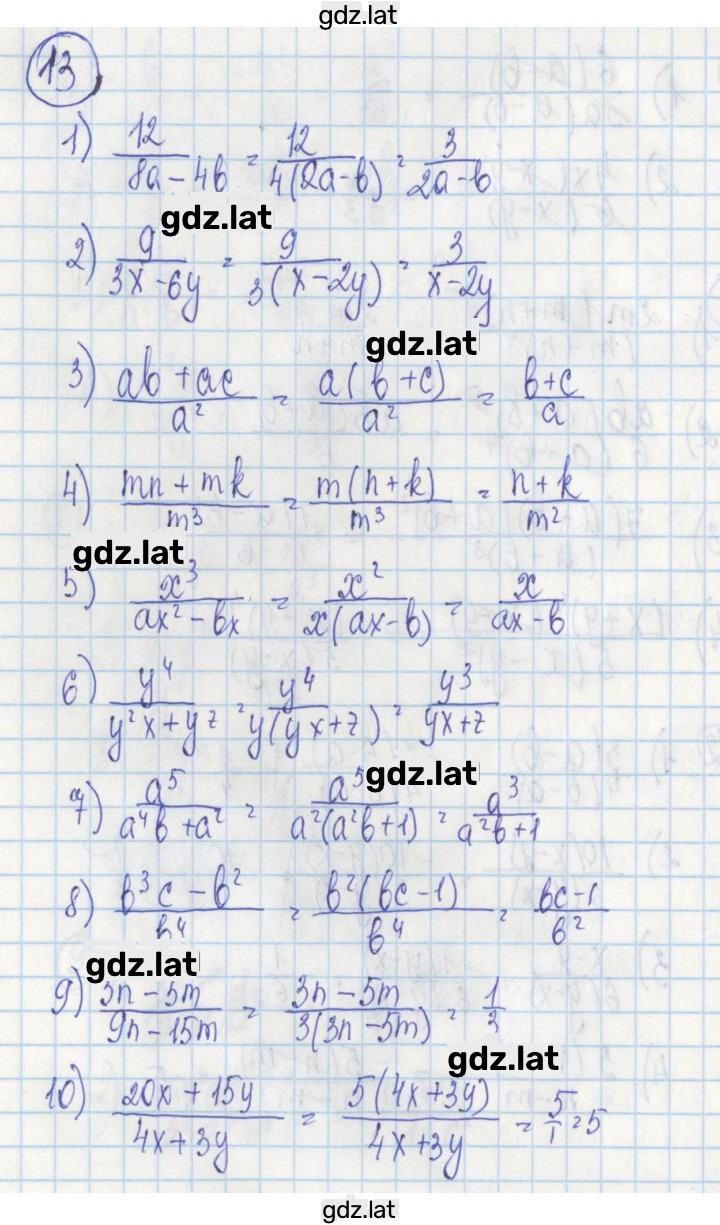 gdz.lat
13
1) 12/(8a - 4b) = 12/(4(2a - b)) = 3/(2a - b)
gdz.lat
2) 9/(3x - 6y) = 9/(3(x - 2y)) = 3/(x - 2y)
gdz.lat
3) (ab + ac)/a² = a(b + c)/a² = (b + c)/a
4) (mn + mk)/m³ = m(n + k)/m³ = (n + k)/m²
gdz.lat
5) x³/(ax² - bx) = x²/(x(ax - b)) = x/(ax - b)
6) y⁴/(y²x + yz) = y⁴/(y(yx + z)) = y³/(yx + z)
gdz.lat
7) a⁵/(a⁴b + a²) = a⁵/(a²(a²b + 1)) = a³/(a²b + 1)
8) (b³c - b²)/b⁴ = b²(bc - 1)/b⁴ = (bc - 1)/b²
gdz.lat
9) (3n - 5m)/(9n - 15m) = (3n - 5m)/(3(3n - 5m)) = 1/3
gdz.lat
10) (20x + 15y)/(4x + 3y) = 5(4x + 3y)/(4x + 3y) = 5/1 = 5
gdz.lat